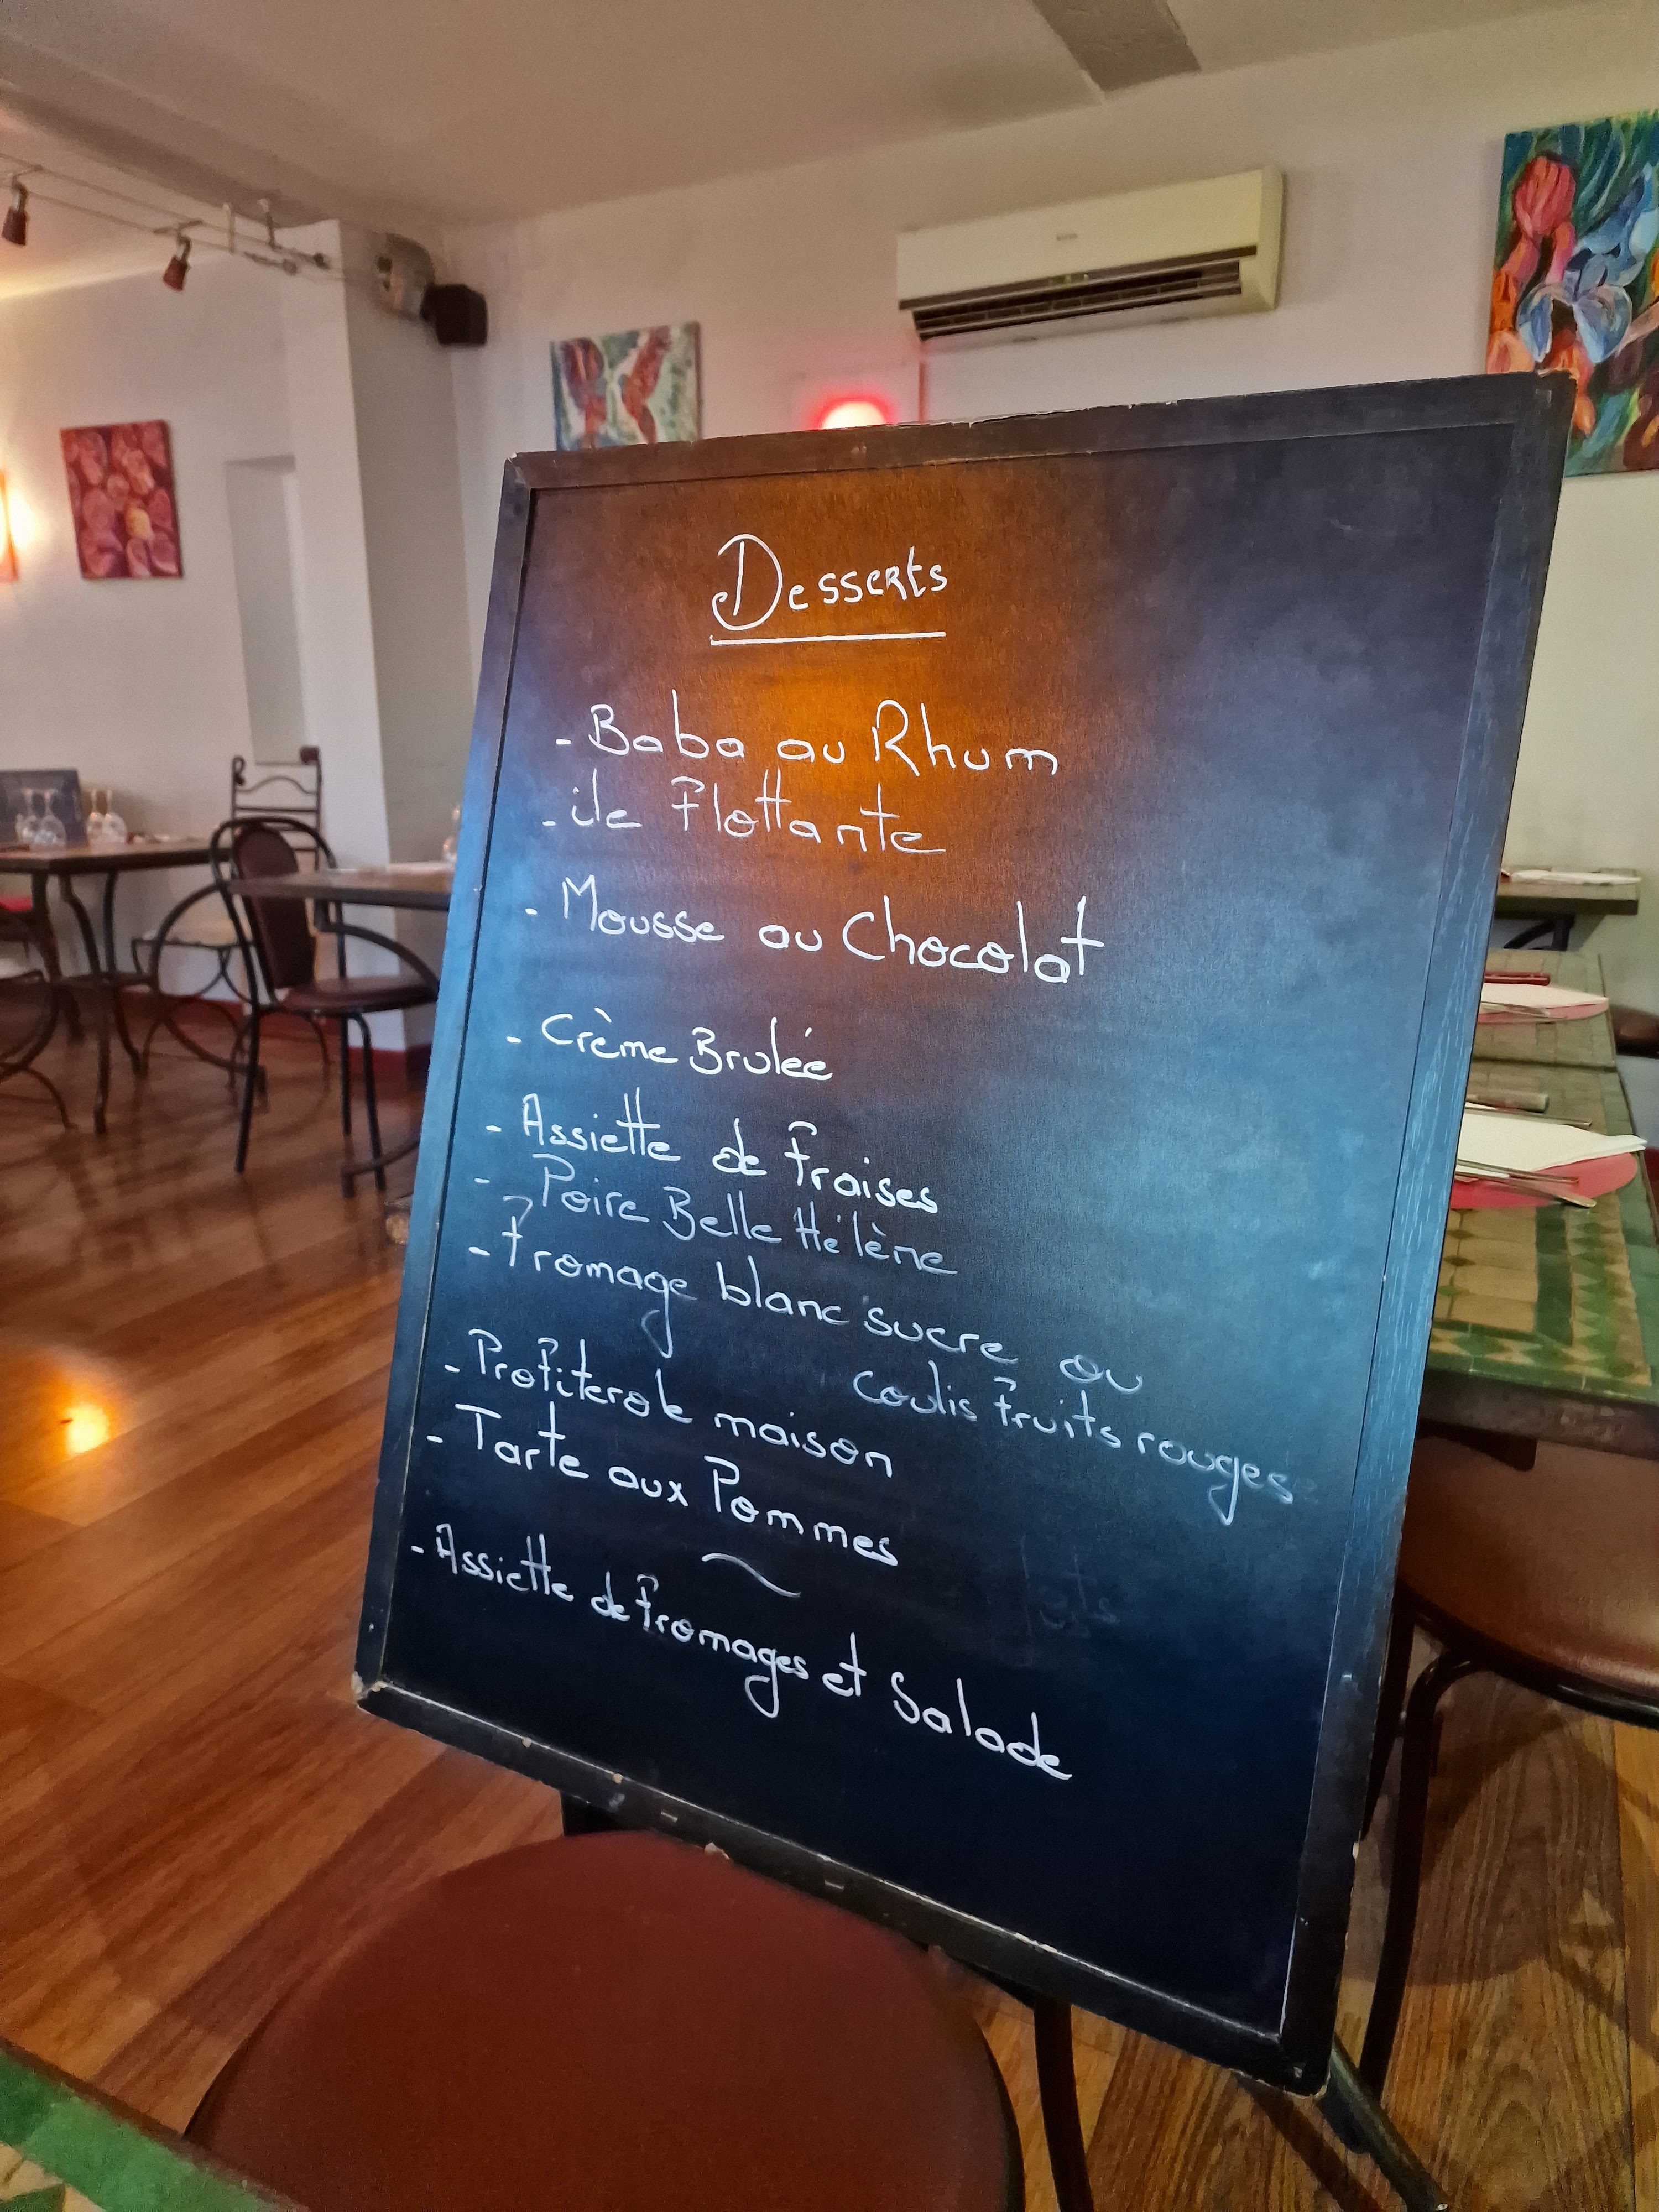 Desserts
- Baba au Rhum
- ile Flottante
- Mousse au Chocolat
- Crème Brulée
- Assiette de Fraises
- Poire Belle Hélène
- Fromage blanc sucre ou
coulis fruits rouges
- Profiterole maison
- Tarte aux Pommes
~
- Assiette de Fromages et Salade